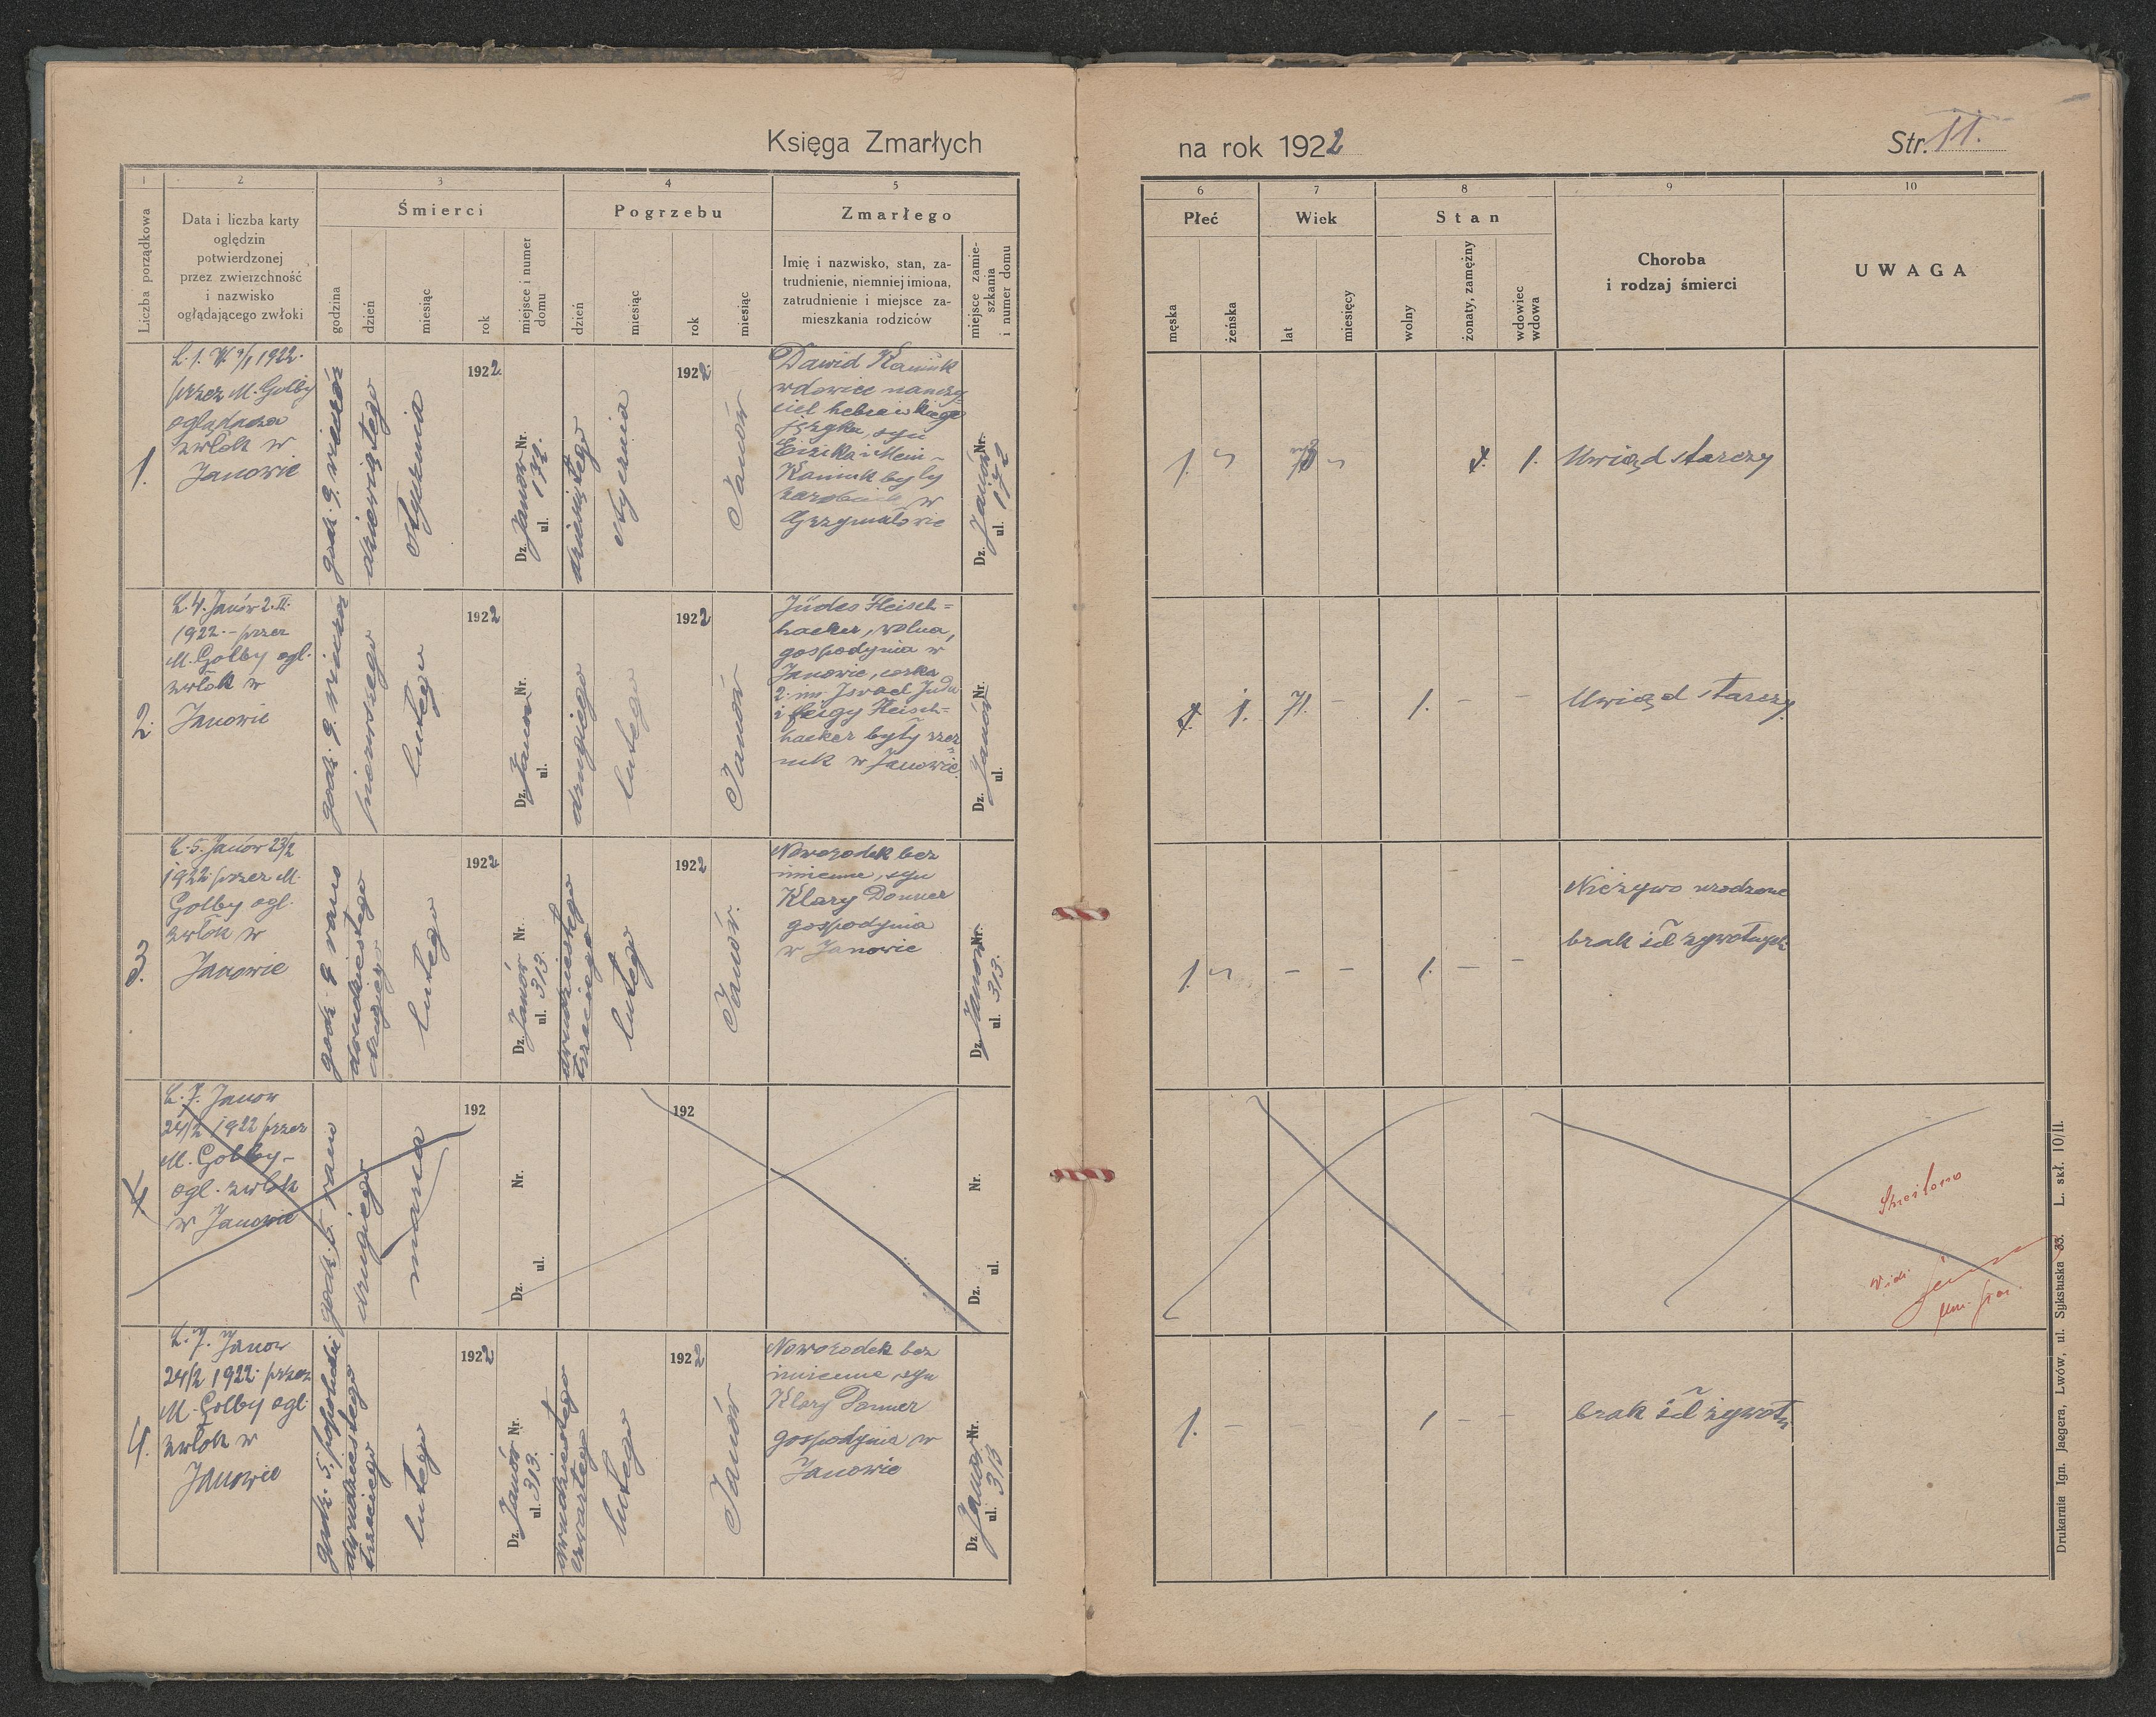 Księga Zmarłych
na rok 1922
Str. 11.
1
2
3
4
5
6
7
8
9
10
Liczba porządkowa
Data i liczba karty
oględzin
potwierdzonej
przez zwierzchność
i nazwisko
oglądającego zwłoki
Śmierci
godzina
dzień
miesiąc
rok
miejsce i numer
domu
Pogrzebu
dzień
miesiąc
rok
miesiąc
Zmarłego
Imię i nazwisko, stan, za-
trudnienie, niemniej imiona,
zatrudnienie i miejsce za-
mieszkania rodziców
miejsce zamie-
szkania
i numer domu
Płeć
męska
żeńska
Wiek
lat
miesięcy
Stan
wolny
żonaty, zamężny
wdowiec
wdowa
Choroba
i rodzaj śmierci
UWAGA
1.
L. 1. 1922.
przez M. Golby
oglądacza
zwłok w
Janowie
godz. 9. wieczór
dziewiątego
stycznia
1922.
Dz. Janów Nr.
ul.
dziewiętego
stycznia
1922
Janów
Dawid Kaniuk
wdowiec nauczy-
ciel hebrajskiego
języka, syn
Kaniuk były
w
Grzymałowie
Dz. Janów Nr.
ul. 172
1.
1.
Uwiąd starczy
2.
L. 4. Janów 2. II.
1922.- przez
M. Golby ogl.
zwłok w
Janowie
godz. 9.
pierwszego
lutego
1922
Dz. Janów Nr.
ul.
drugiego
lutego
1922
Janów
Jüdes Fleisch=
hacker, wolna,
gospodynia w
Janowie, corka
Israel Juda
i Feigy Fleisch=
hacker były rzez
nik w Janowie.
Dz. Janów Nr.
ul.
1.
71.
-
1.
-
-
Uwiąd starczy.
3.
L. 5. Janów 23/2
1922 przez M.
Golby ogl.
zwłok w
Janowie
godz. 9 rano
dwudziestego
drugiego
lutego
1922
Dz. Janów Nr.
ul. 313.
dwudziestego
trzeciego
lutego
1922
Janów.
Noworodek bez
imienne, syn
Klary Donner
gospodynia
w Janowie
Dz. Janów Nr.
ul. 313.
1.
-
-
1.
-
-
Nieżywo urodzone
brak sił żywotnych
4
L. 7. Janow
24/2 1922 przez
M. Golby -
ogl. zwłok
w Janowie
godz. 6. rano
drugiego
marca
192
Dz. Nr.
ul.
192
Dz. Nr.
ul.
Skreślono
Vidi
4.
L. 7. Janow
24/2 1922. przez
M. Golby ogl.
zwłok w
Janowie
godz. 5. popołudniu
dwudziestego
trzeciego
lutego
1922
Dz. Janów Nr.
ul. 313.
dwudziestego
czwartego
lutego
1922
Janów
Noworodek bez
imienne, syn
Klary Donner
gospodynia w
Janowie
Dz. Janów Nr.
ul. 313
1.
-
-
-
1
-
-
brak sił żywotn
Drukarnia Ign. Jaegera, Lwów, ul. Sykstuska 33. L. skł. 10/II.